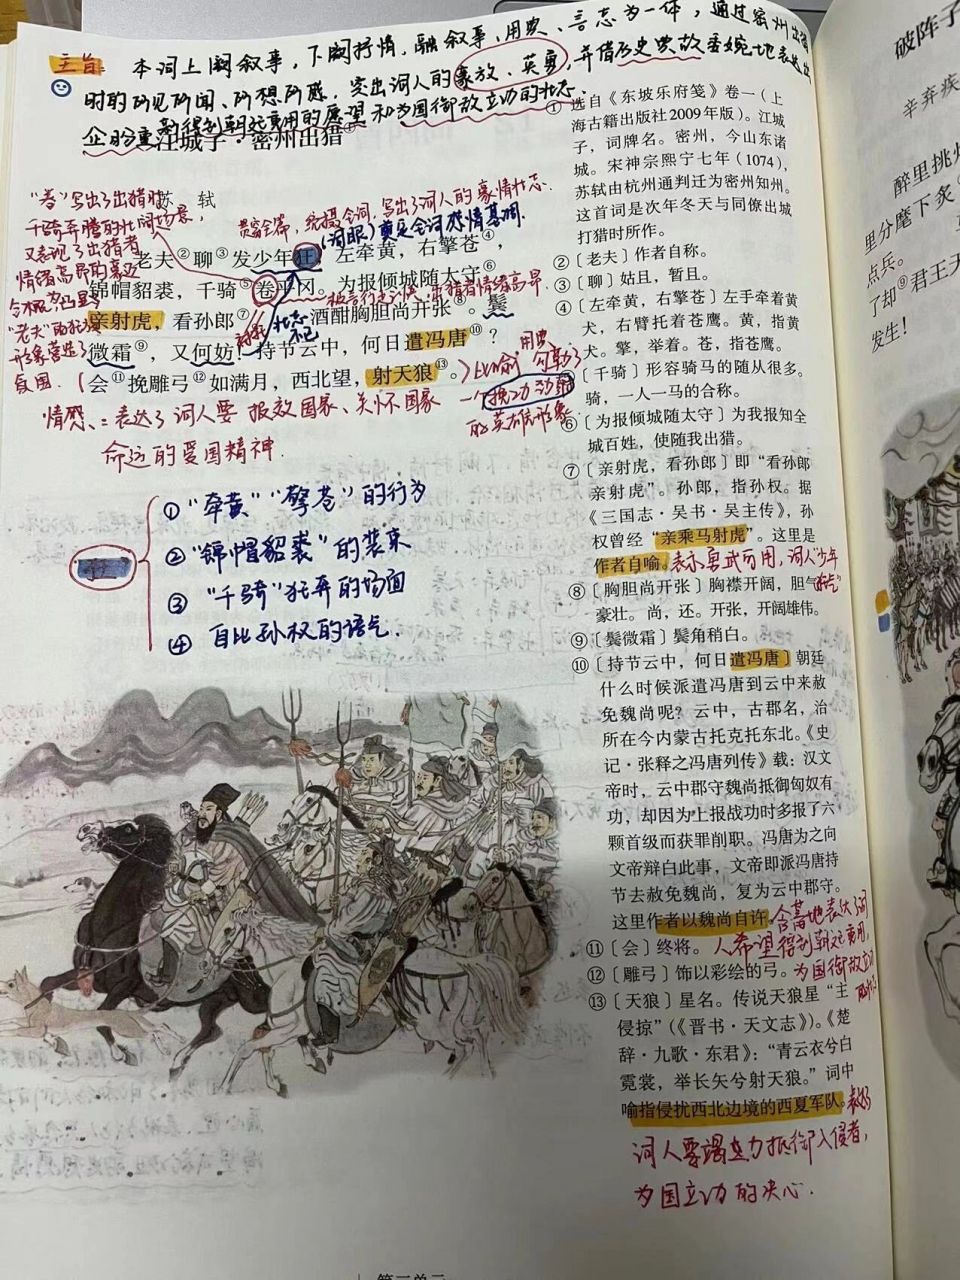 主旨: 本词上阕叙事，下阕抒情，融叙事、用典、言志为一体，通过密州出猎
时的所见所闻、所想所感，突出词人的豪放、英勇，并借历史典故委婉地表达出
企盼重新得到朝廷重用的愿望和为国御敌立功的壮志.
江城子·密州出猎①
苏 轼
“卷”写出了出猎时
千骑奔腾的壮阔场景，
又表现了出猎者
情绪高昂的豪迈
“老夫”的狂放
形象营造了
氛围.
贯穿全篇，统摄全词，写出了词人的豪情壮志.
(词眼)奠定全词感情基调.
老夫②聊③发少年狂，左牵黄，右擎苍④，
锦帽貂裘，千骑⑤卷平冈。为报倾城随太守⑥，
亲射虎，看孙郎⑦。 酒酣胸胆尚开张⑧。鬓
微霜⑨，又何妨！持节云中，何日遣冯唐⑩？
会⑪挽雕弓⑫如满月，西北望，射天狼⑬。
比喻 用典 勾勒了
一个挽弓劲射
的英雄形象.
情感:表达了词人要报效国家、关怀国家
命运的爱国精神.
狂
①“牵黄”“擎苍”的行为
②“锦帽貂裘”的装束
③“千骑”狂奔的场面
④ 自比孙权的语气.
① 选自《东坡乐府笺》卷一（上
海古籍出版社2009年版）。江城
子，词牌名。密州，今山东诸
城。宋神宗熙宁七年（1074），
苏轼由杭州通判迁为密州知州。
这首词是次年冬天与同僚出城
打猎时所作。
②〔老夫〕作者自称。
③〔聊〕姑且，暂且。
④〔左牵黄，右擎苍〕左手牵着黄
犬，右臂托着苍鹰。黄，指黄
犬。擎，举着。苍，指苍鹰。
⑤〔千骑〕形容骑马的随从很多。
骑，一人一马的合称。
⑥〔为报倾城随太守〕为我报知全
城百姓，使随我出猎。
⑦〔亲射虎，看孙郎〕即“看孙郎
亲射虎”。孙郎，指孙权。据
《三国志·吴书·吴主传》，孙
权曾经“亲乘马射虎”。这里是
作者自喻。表示勇武可用，词人“少年
狂气”
⑧〔胸胆尚开张〕胸襟开阔，胆气
豪壮。尚，还。开张，开阔雄伟。
⑨〔鬓微霜〕鬓角稍白。
⑩〔持节云中，何日遣冯唐〕朝廷
什么时候派遣冯唐到云中来赦
免魏尚呢？云中，古郡名，治
所在今内蒙古托克托东北。《史
记·张释之冯唐列传》载：汉文
帝时，云中郡守魏尚抵御匈奴有
功，却因为上报战功时多报了六
颗首级而获罪削职。冯唐为之向
文帝辩白此事，文帝即派冯唐持
节去赦免魏尚，复为云中郡守。
这里作者以魏尚自许。含蓄地表达了词
人希望得到朝廷重用，
为国御敌立功
⑪〔会〕终将。
⑫〔雕弓〕饰以彩绘的弓。
⑬〔天狼〕星名。传说天狼星“主
侵掠”（《晋书·天文志》）。《楚
辞·九歌·东君》：“青云衣兮白
霓裳，举长矢兮射天狼。”词中
喻指侵扰西北边境的西夏军队。表达了
词人要竭尽力抵御入侵者，
为国立功的决心.
破阵子
辛弃疾
醉里挑
里分麾下炙
点兵。
了却⑨君王天
发生！